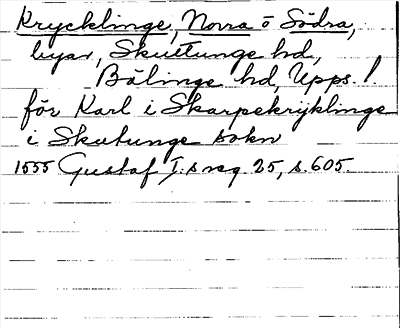 Krycklinge, Norra o Södra,
byar, Skuttunge hd,
Bälinge hd, Upps. l.
för Karl i Skarpekrijklinge
i Skutunge sokn
1555 Gustaf I:s reg. 25, s. 605.